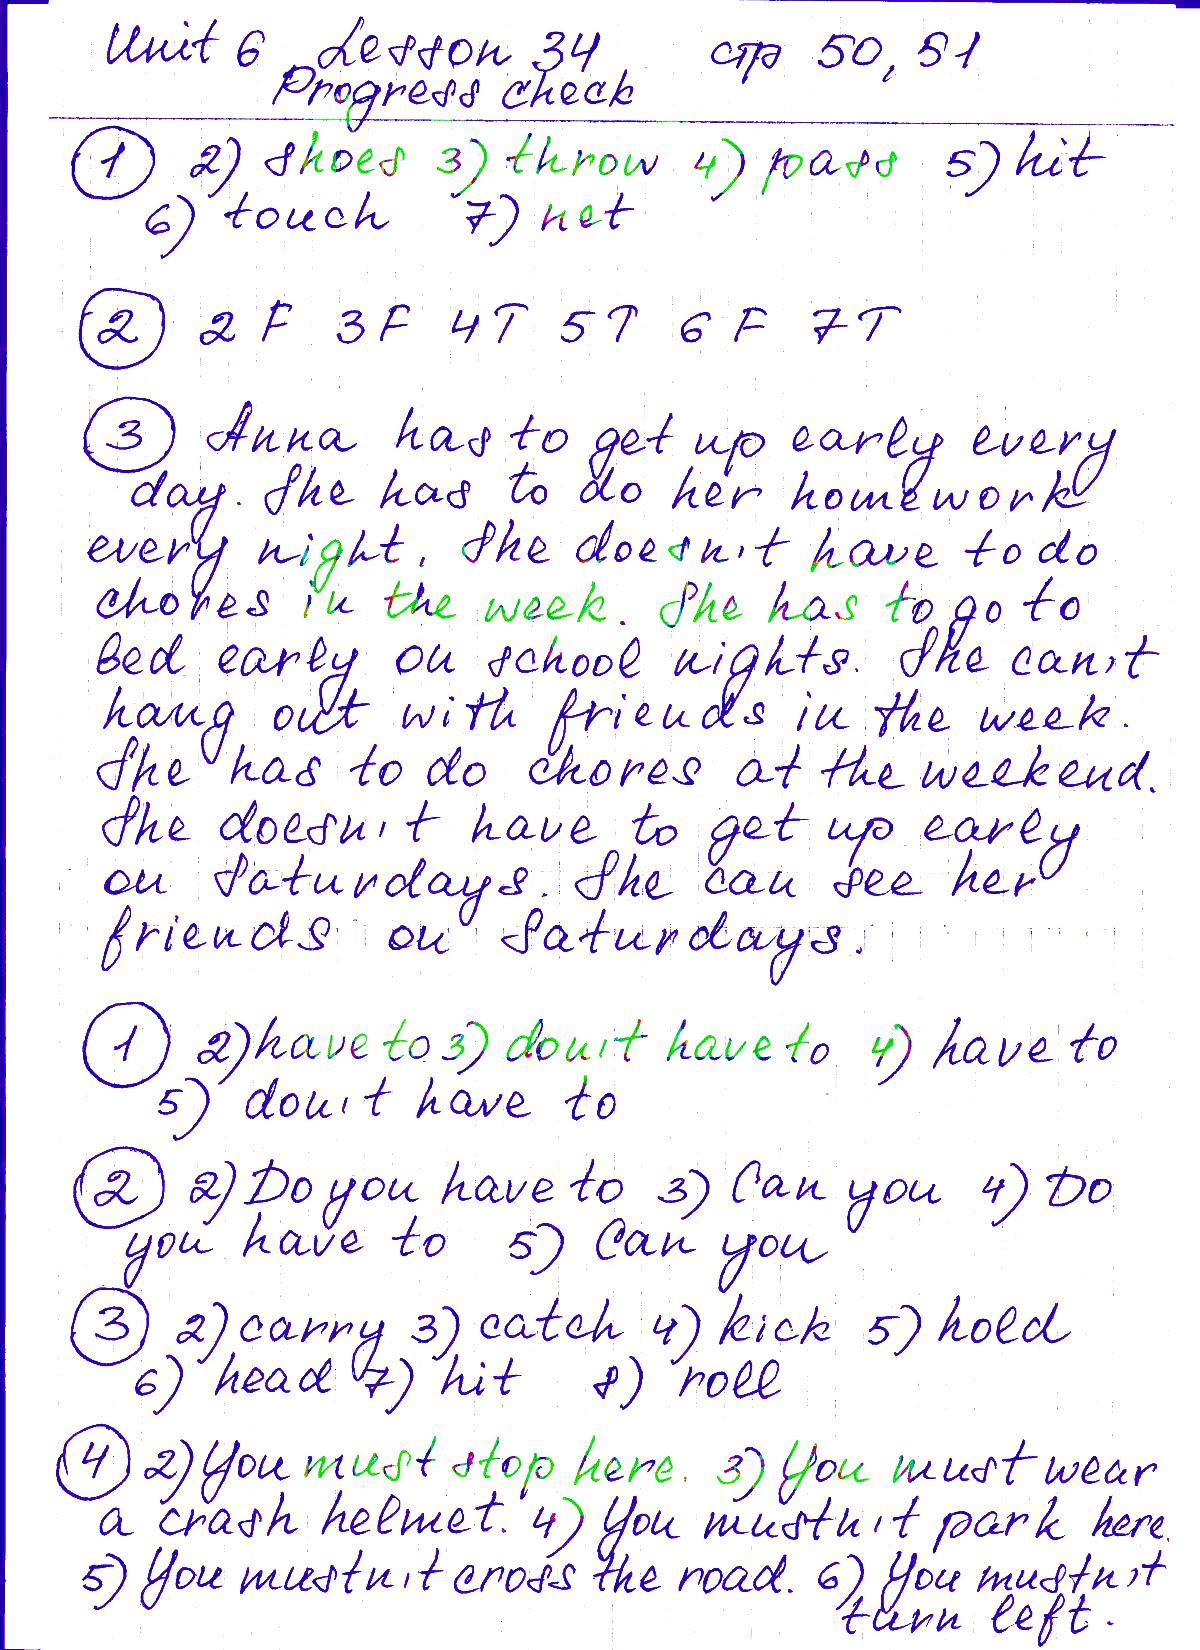 Unit 6 Lesson 34 стр 50, 51
Progress check
1 2) shoes 3) throw 4) pass 5) hit
6) touch 7) net
2 2 F 3 F 4 T 5 T 6 F 7 T
3 Anna has to get up early every
day. She has to do her homework
every night. She doesn't have to do
chores in the week. She has to go to
bed early on school nights. She can't
hang out with friends in the week.
She has to do chores at the weekend.
She doesn't have to get up early
on Saturdays. She can see her
friends on Saturdays.
1 2) have to 3) don't have to 4) have to
5) don't have to
2 2) Do you have to 3) Can you 4) Do
you have to 5) Can you
3 2) carry 3) catch 4) kick 5) hold
6) head 7) hit 8) roll
4 2) You must stop here. 3) You must wear
a crash helmet. 4) You mustn't park here.
5) You mustn't cross the road. 6) You mustn't
turn left.